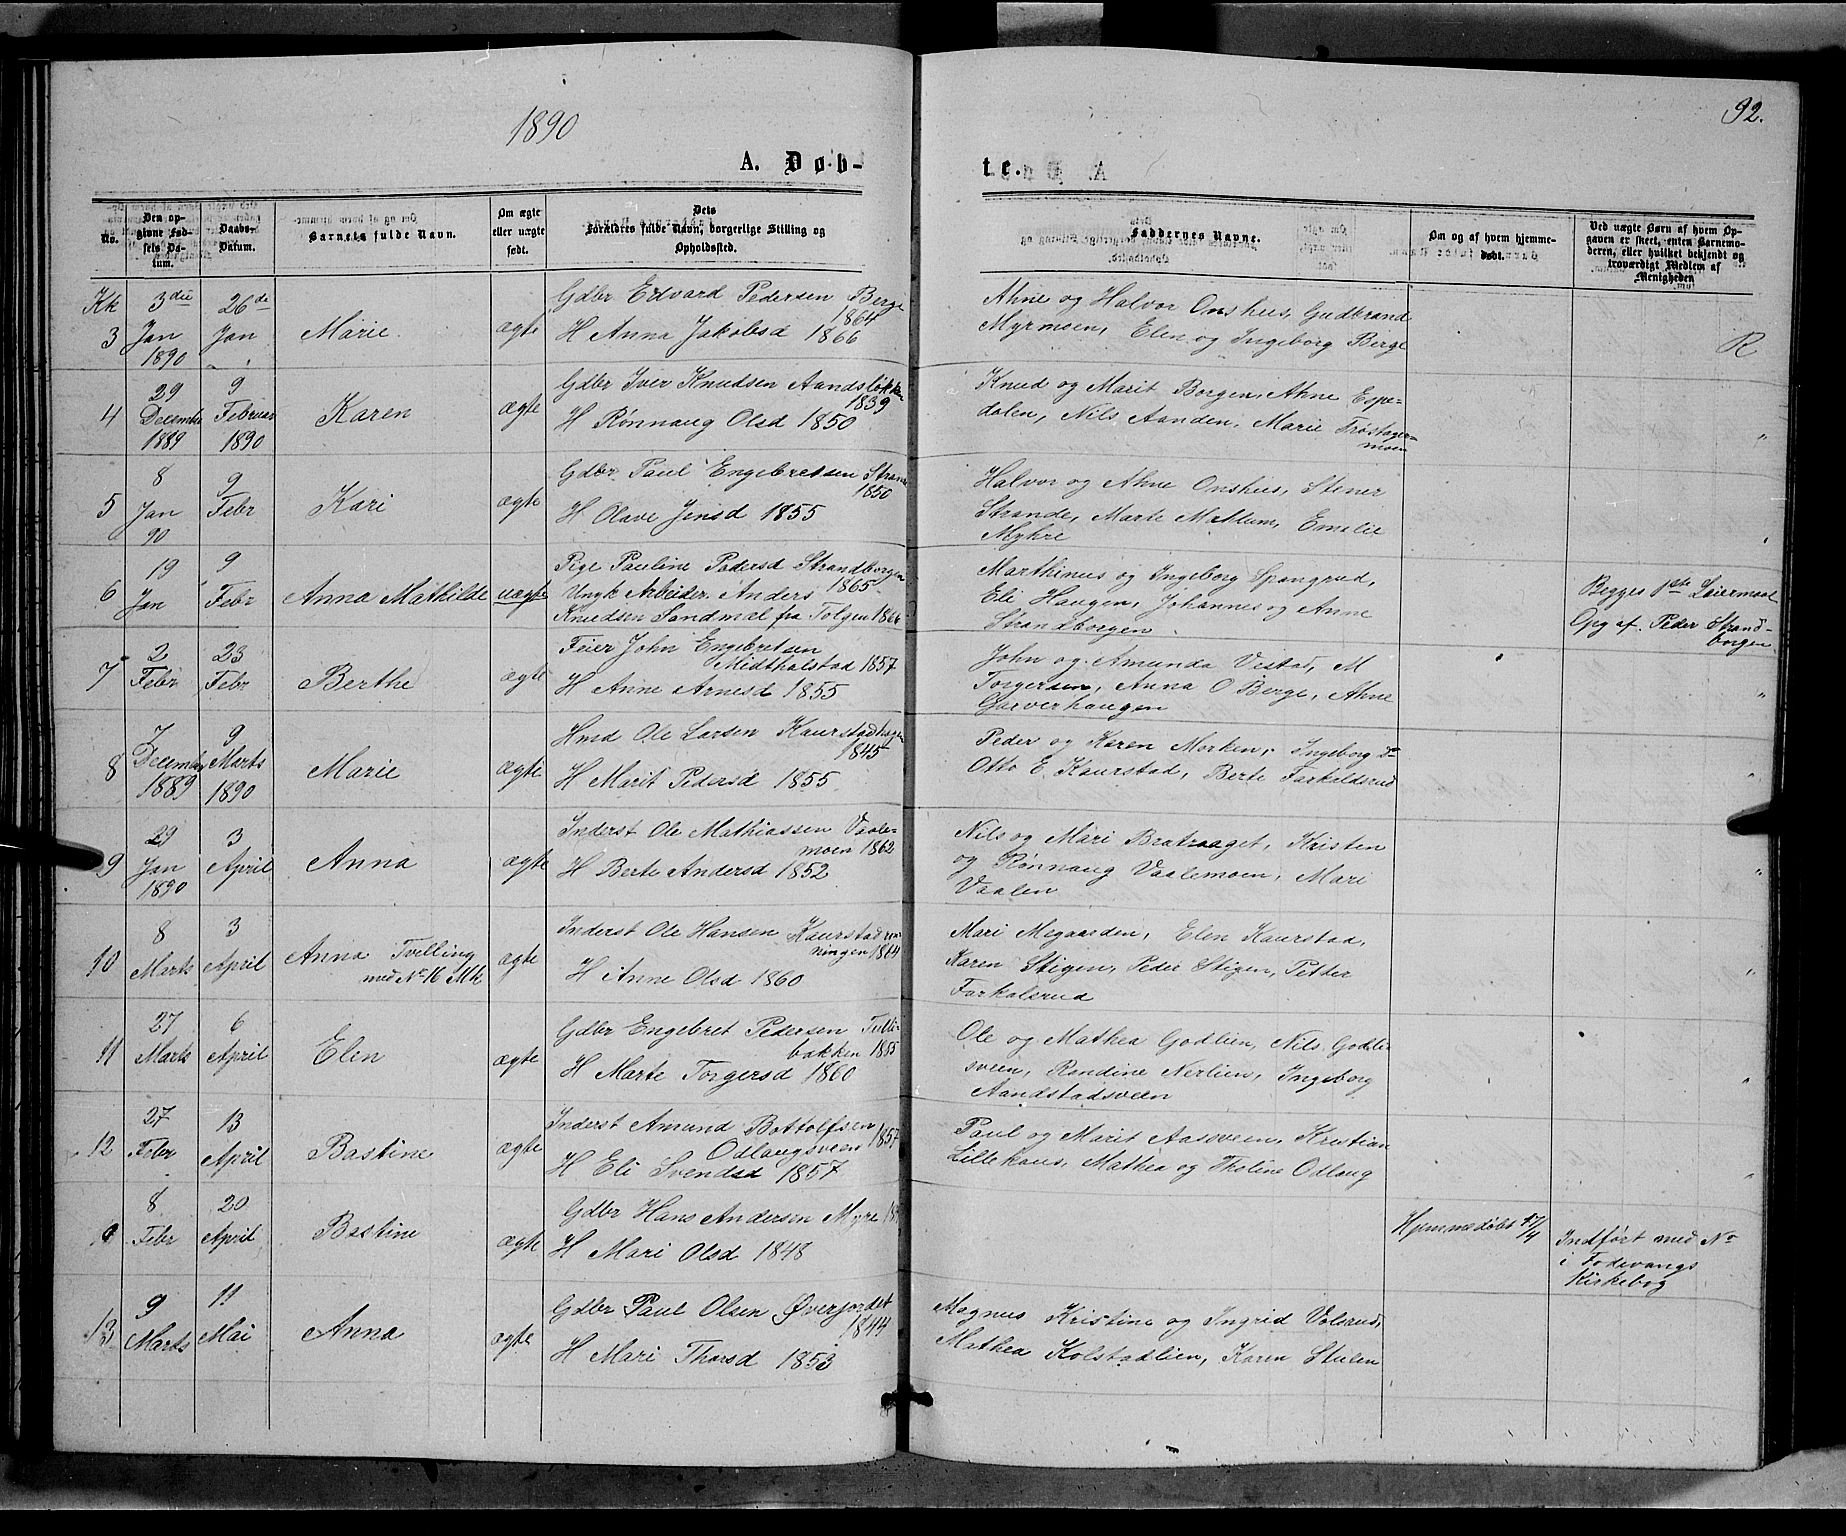 1890
92.
A. Døb-
te.
No.
Den op-
givne Fød-
sels Da-
tum.
Daabs-
Datum.
Barnets fulde Navn.
Om ægte
eller uægte
født.
Dets
Forældres fulde Navn, borgerlige Stilling og
Opholdssted.
Faddernes Navne.
Om og af hvem hjemme-
døbt.
Ved uægte Børn af hvem Op-
gaven er skeet, enten Barnemo-
deren, eller hvilket bekjendt og
troværdigt Medlem af
Menigheden
Kk
3
3die
Jan
1890
26de
Jan
Marie
ægte
Gdbr Edvard Pedersen Berge
1864
H Anna Jakobsd 1866
Ahne og Halvor Onshus, Gudbrand
Myrmoen, Elen og Ingeborg Berge
R
4
29
Decembr
1889
9
Februar
1890
Karen
ægte
Gdbr Iver Knudsen Aandsløkken
1839
H Rønnaug Olsd 1850
Knud og Marit Borgen, Ahne Espe-
dalen, Nils Aanden, Marie Trøstager-
moen
"
5
8
Jan
90
9
Febr
Kari
ægte
Gdbr. Paul Engebretsen Strande
1850
H Olave Jensd 1855
Halvor og Ahne Onshus, Stener
Strande, Marte Mællum, Emelie
Myhre
"
6
19
Jan
9
Febr
Anna Mathilde
uægte
Pige Pauline Pedersd Strandborgen
1865
Ungk Arbeider Anders
Knudsen Sandmæl fra Tolgen 1866
Marthinus og Ingeborg Spangrud,
Eli Haugen, Johannes og Anne
Strandborgen
Begges 1ste Leiermaal
Opg af. Peder Strand-
borgen
7
2
Febr
23
Febr
Berthe
ægte
Feier John Engebretsen
Midthalstad 1857
H Anne Arnesd 1855
John og Amunda Vestad, M
Torgersen, Anna O Berge, Ahne
Garverhaugen
"
8
7
December
1889
9
Marts
1890
Marie
ægte
Hmd Ole Larsen Kaurstadhagen
1845
H Marit Pedersd 1855
Peder og Karen Morken, Ingeborg &
Otto E. Kaurstad, Berte Farkildsrud
"
9
29
Jan
1890
3
April
Anna
ægte
Inderst Ole Mathiassen Vaale-
moen 1862
H Berte Andersd 1852
Nils og Mari Bratraaget, Kristen
og Rønnaug Vaalemoen, Mari
Vaalen
"
10
8
Marts
3
April
Anna Tvilling
med No 16 Mk
ægte
Inderst Ole Hansen Kaurstadrø-
ningen 1864
H Anne Olsd 1860
Mari Megaarden, Elen Kaurstad,
Karen Stigen, Peder Stigen, Petter
Farkalsrud
"
11
27
Marts
6
April
Elen
ægte
Gdbr Engebret Pedersen Tulli-
bakken 1855
H Marte Torgersd 1860
Ole og Mathea Godlien, Nils Godli-
sveen, Randine Nerlien, Ingeborg
Aandstadsveen
"
12
27
Febr
13
April
Bastine
ægte
Inderst Amund Bottolfsen 1857
Odlaugsveen
H Eli Svendsd 1857
Paul og Marit Aasveen, Kristian
Lillehaus, Mathea og Tholine Odlaug
"
8
Febr
20
April
Bastine
ægte
Gdbr Hans Andersen Myre
H Mari Olsd 1848
Hjemmedøbt 17/4
Indført med No
i Fodevangs
Kirkebog
13
9
Marts
11
Mai
Anna
ægte
Gdbr Paul Olsen Øverjordet
1844
H Mari Thorsd 1853
Magnus Kristine og Ingrid Volsrud,
Mathea Kolstadlien, Karen Stulen